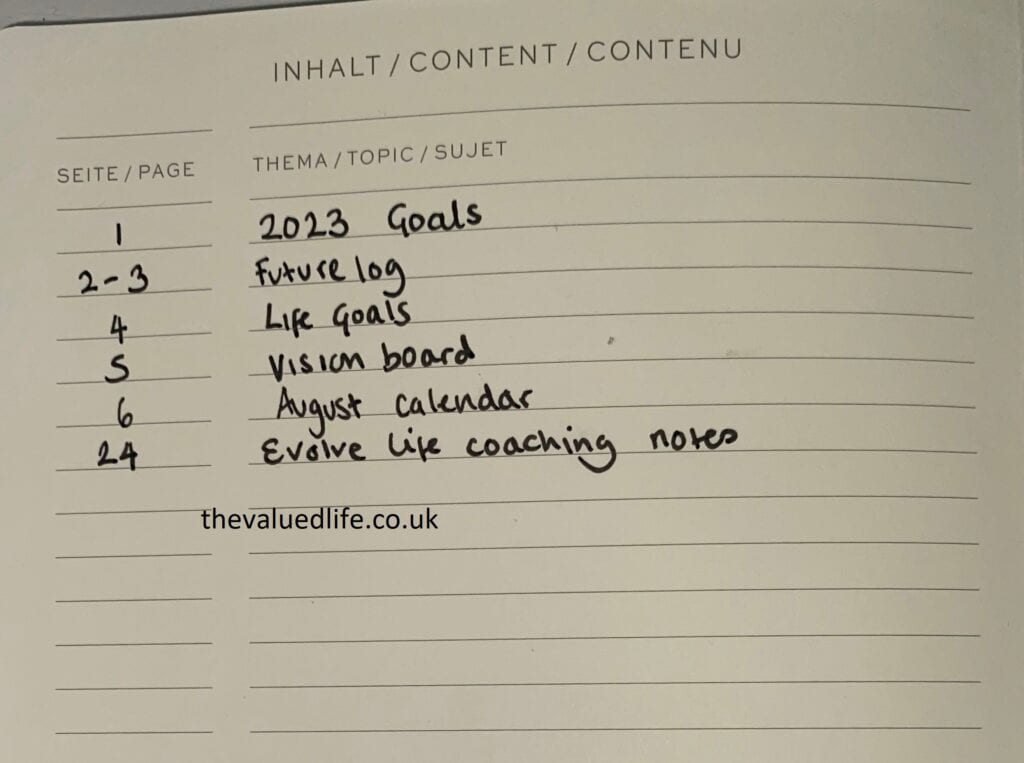 INHALT / CONTENT / CONTENU
SEITE / PAGE THEMA / TOPIC / SUJET
1 2023 Goals
2-3 Future log
4 Life Goals
5 Vision board
6 August calendar
24 Evolve life coaching notes
thevaluedlife.co.uk